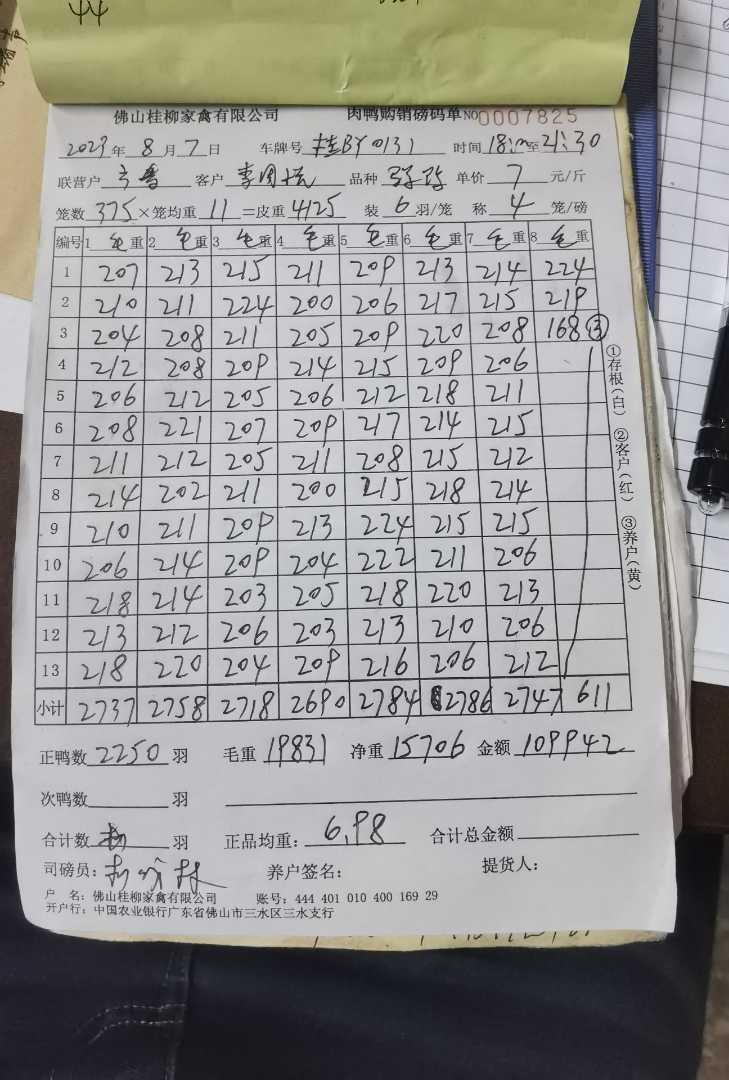 44
佛山桂柳家禽有限公司 肉鸭购销磅码单 NO0007825
2023年 8月 7日 车牌号 桂BY0131 时间 18: 至 21:30
联营户 客户 李国 品种 单价 7 元/斤
笼数 375 ×笼均重 11 =皮重 4125 装 6 羽/笼 称 4 笼/磅
编号 1 毛重 2 毛重 3 毛重 4 毛重 5 毛重 6 毛重 7 毛重 8 毛重
1 207 213 215 211 209 213 214 224
2 210 211 224 200 206 217 215 219
3 204 208 211 205 209 220 208 168 ③
4 212 208 209 214 215 209 206
5 206 212 205 206 212 218 211
6 208 221 207 209 217 214 215
7 211 212 205 211 208 215 212
8 214 202 211 200 215 218 214
9 210 211 209 213 224 215 215
10 206 214 209 204 222 211 206
11 218 214 203 205 218 220 213
12 213 212 206 203 213 210 206
13 218 220 204 209 216 206 212
小计 2737 2758 2718 2690 2784 2786 2747 611
①存根(白) ②客户(红) ③养户(黄)
正鸭数 2250 羽 毛重 19831 净重 15706 金额 109942
次鸭数 羽
合计数 羽 正品均重: 6.98 合计总金额
司磅员: 养户签名: 提货人:
户 名: 佛山桂柳家禽有限公司 账号: 444 401 010 400 169 29
开户行: 中国农业银行广东省佛山市三水区三水支行